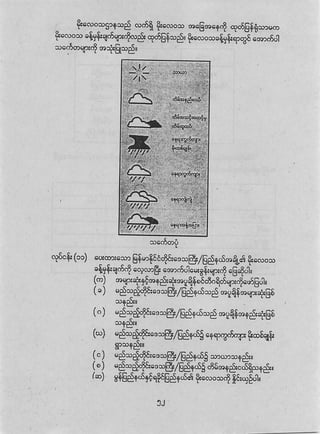 မိုးလေဝသဌာနသည် လက်ရှိ မိုးလေဝသ အခြေအနေကို ထုတ်ပြန်ရုံသာမက
မိုးလေဝသ ခန့်မှန်းချက်များကိုလည်း ထုတ်ပြန်သည်။ မိုးလေဝသခန့်မှန်းရာတွင် အောက်ပါ
သင်္ကေတများကို အသုံးပြုသည်။
သာယာ
တိမ်အနည်းငယ်
တိမ်အသင့်အတင့်မှ
တိမ်ထူထပ်
နေရာကွက်ကျား
မိုးထစ်ချုန်း
နေရာကွက်ကျား
နေရာကျဲကျဲ
နေရာအနှံ့အပြား
သင်္ကေတပုံ
လုပ်ငန်း (၁၁) ပေးထားသော မြန်မာနိုင်ငံတိုင်းဒေသကြီး/ပြည်နယ်အချို့၏ မိုးလေဝသ
ခန့်မှန်းချက်ကို လေ့လာပြီး အောက်ပါမေးခွန်းများကို ဖြေဆိုပါ။
(က) အများဆုံးနှင့်အနည်းဆုံးအပူချိန်စင်တီဂရိတ်များကိုဖော်ပြပါ။
(ခ) မည်သည့်တိုင်းဒေသကြီး/ပြည်နယ်သည် အပူချိန်အများဆုံးဖြစ်
သနည်း။
(ဂ) မည်သည့်တိုင်းဒေသကြီး/ပြည်နယ်သည် အပူချိန်အနည်းဆုံးဖြစ်
သနည်း။
(ဃ) မည်သည့်တိုင်းဒေသကြီး/ပြည်နယ်၌ နေရာကွက်ကျား မိုးထစ်ချုန်း
ရွာသနည်း။
(င) မည်သည့်တိုင်းဒေသကြီး/ပြည်နယ်၌ သာယာသနည်း။
(စ) မည်သည့်တိုင်းဒေသကြီး/ပြည်နယ်၌ တိမ်အနည်းငယ်ရှိသနည်း။
(ဆ) မွန်ပြည်နယ်နှင့်ရခိုင်ပြည်နယ်၏ မိုးလေဝသကို နှိုင်းယှဉ်ပါ။
၅၂